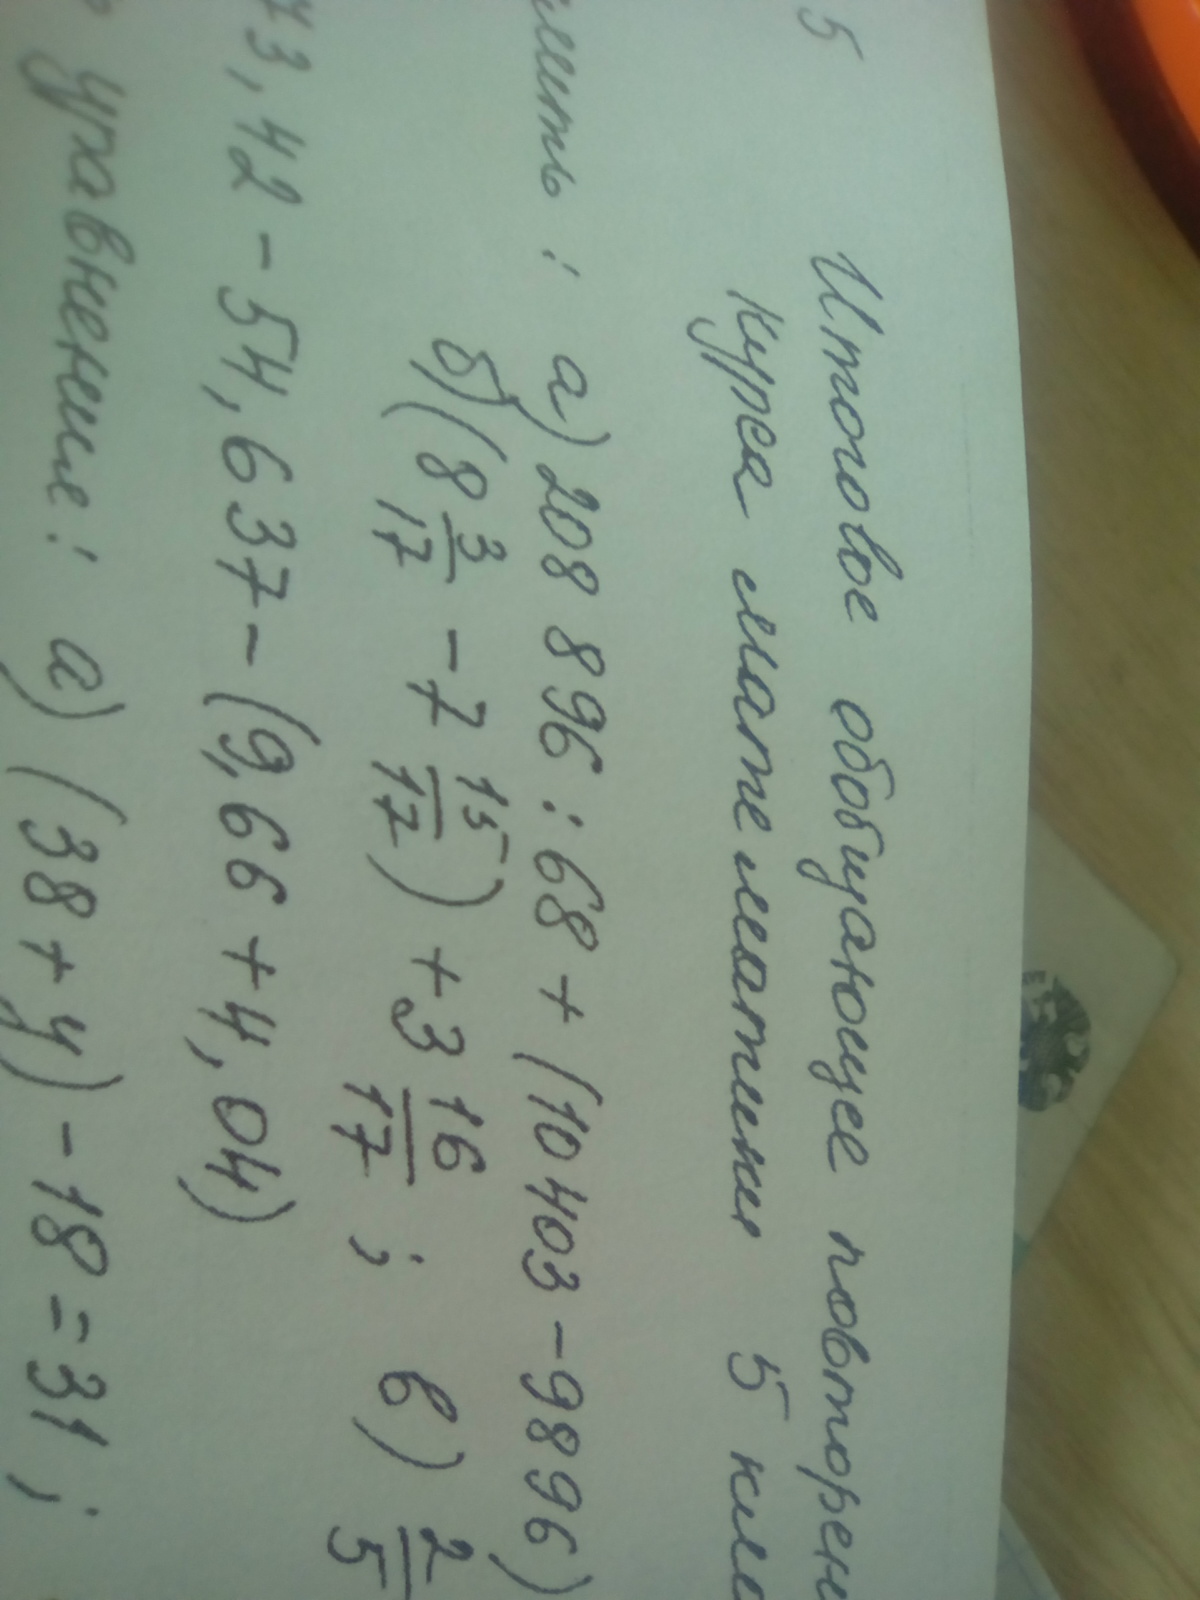 5
Итоговое обобщающее повторен
курса математики 5 кла
лить: а) 208 896 : 68 + (10 403 - 9896)
б) (8 3/17 - 7 15/17) + 3 16/17 ; в) 2/5
73,42 - 54,637 - (9,66 + 4,04)
ь уравнение: а) (38 + y) - 18 = 31 ;